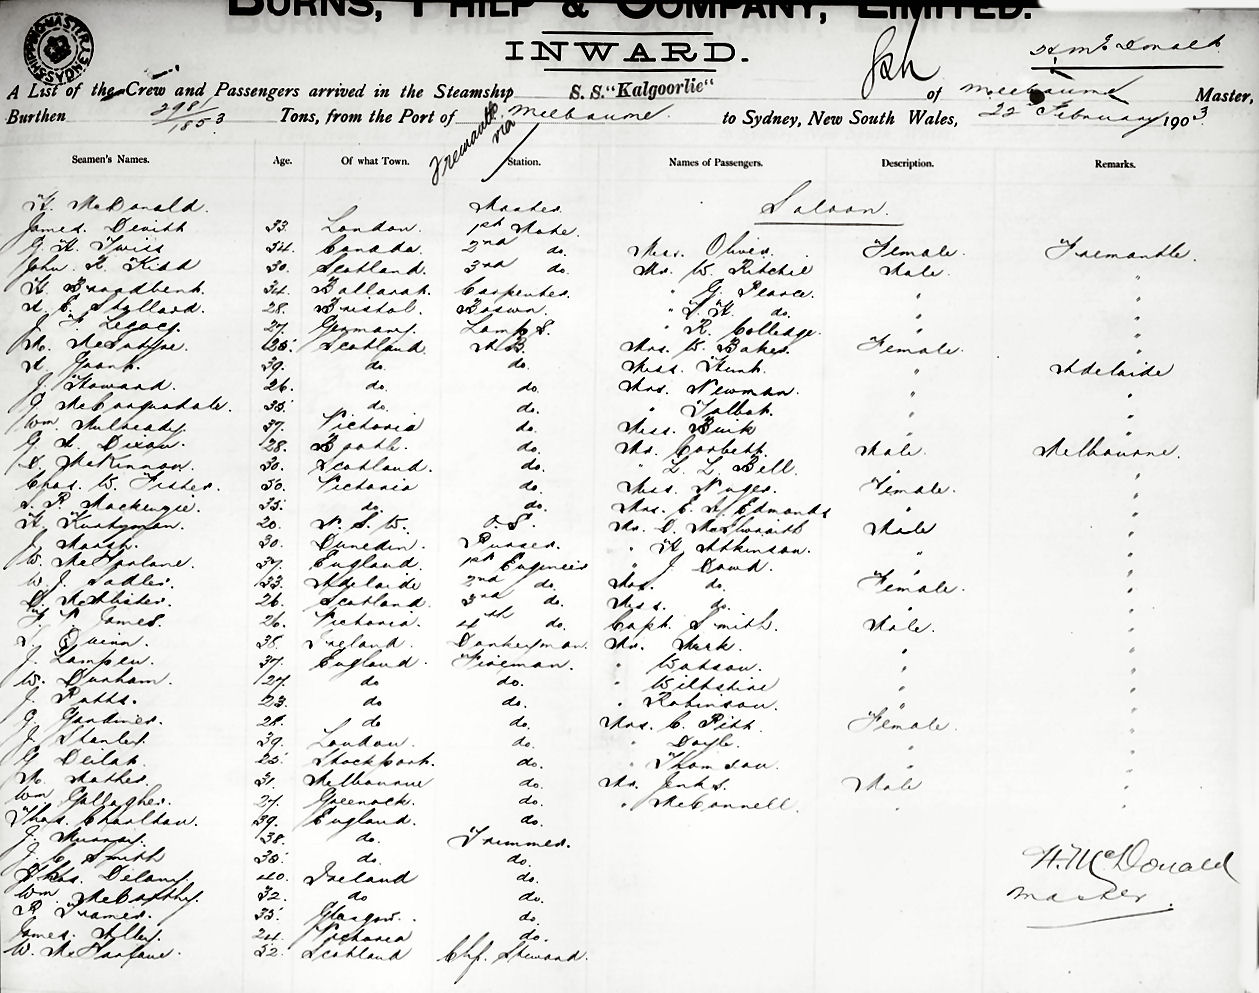 BURNS, PHILP & COMPANY, LIMITED.
INWARD.
SHIPPING MASTER SYDNEY
H. McDonald
A List of the Crew and Passengers arrived in the Steamship S. S. "Kalgoorlie" of Melbourne Master,
Burthen 2981/1853 Tons, from the Port of Fremantle via Melbourne to Sydney, New South Wales, 22 February 1903
Seamen's Names. Age. Of what Town. Station. Names of Passengers. Description. Remarks.
H. McDonald. Master Saloon.
James Devitt 33. London. 1st Mate.
G. H. Twiss 34. Canada. 2nd do. Mrs. Oliver. Female. Fremantle.
John R. Kidd 30. Scotland. 3rd do. Mr. W. Ritchie Male. "
H. Broadbent 34. Ballarat. Carpenter. " G. Pearce. " "
28. Bristol. Boswn. " do. " "
J. F. Legacy. 27. Germany. Lamps. " R. Colledge. " "
25. Scotland. A.B. Mrs. W. Baker. Female. "
A. Grant. 39. do. do. Miss. Hunt. " Adelaide
J. Howard. 26. do. do. Mrs. Newman. " "
J. McCorquodale. 35. do. do. " Talbot. " "
Wm. Mulready. 37. Victoria do. Miss. Burk " "
G. A. Dixon. 28. Bootle. do. Mr. Corbett. Male. Melbourne.
D. McKinnon. 30. Scotland. do. " L. L. Bell. " "
Chas. W. Fisher. 30. Victoria do. Miss. Female. "
S. P. Mackenzie. 35. do. do. Mrs. E. A. Edmonds " "
20. N. S. W. O.S. Mr. D. McIlwraith Male "
J. Marsh. 30. Dunedin. Purser. " H. Atkinson. " "
W. McFarlane. 37. England. 1st Engineer " J. Dowd. " "
W. J. Sadler. 33. Adelaide 2nd do. Mrs. do. Female. "
D. McAlister. 26. Scotland. 3rd do. Miss. do. " "
James. 26. Victoria. 4th do. Capt. Smith. Male. "
Quinn. 38. Ireland. Donkeyman. Mr. " "
J. Lampen. 37. England. Fireman. " Watson. " "
W. Durham. 27. do do. " Wiltshire " "
J. Potts. 23. do do. " Robinson. " "
G. Gardiner. 28. do do. Mrs. C. Pitt. Female. "
J. Stanley. 39. London. do. " Doyle. " "
G. 25. Stockport. do. " Thomson. " "
M. Mather. 31. Melbourne do. Mr. Jenks. Male "
Wm. Gallagher. 27. Greenock. do. " McConnell. " "
Thos. Charlton. 39. England. do.
J. Murray. 38. do. Trimmer.
J. C. Smith 30. do. do. H. McDonald
Thos. Delany. 40. Ireland do.
Wm. McCarthy. 32. do do. Master.
P. 35. Glasgow. do.
James. 24. Victoria do.
W. McFarlane. 52. Scotland Chf. Steward.